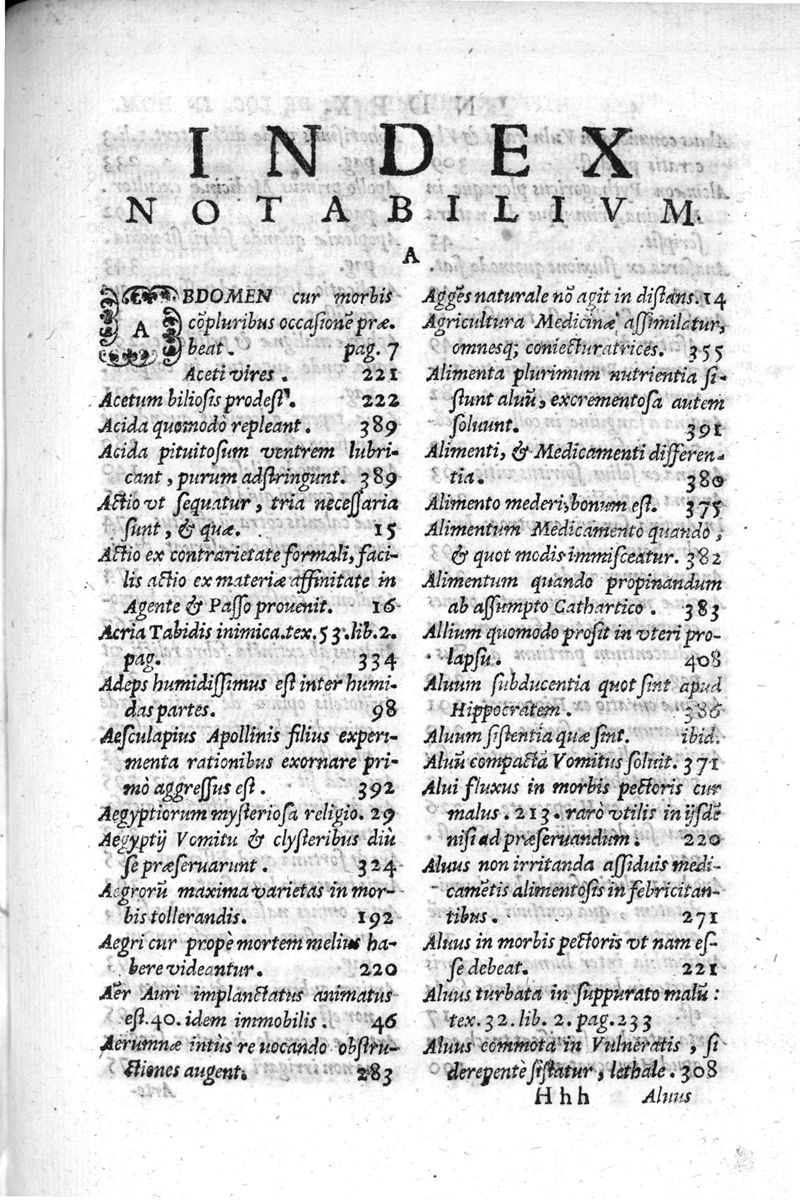 INDEX
NOTABILIVM.
A
ABDOMEN cur morbis
cõpluribus occasionẽ præ-
beat. pag. 7
Aceti vires. 221
Acetum biliosis prodest. 222
Acida quomodo repleant. 389
Acida pituitosum ventrem lubri-
cant, purum adstringunt. 389
Actio vt sequatur, tria necessaria
sunt, & quæ. 15
Actio ex contrarietate formali, faci-
lis actio ex materiæ affinitate in
Agente & Passo prouenit. 16
Acria Tabidis inimica. tex. 53. lib. 2.
pag. 334
Adeps humidissimus est inter humi-
das partes. 98
Aesculapius Apollinis filius experi-
menta rationibus exornare pri-
mò aggressus est. 392
Aegyptiorum mysteriosa religio. 29
Aegyptij Vomitu & clysteribus diù
se præseruarunt. 324
Aegrorũ maxima varietas in mor-
bis tollerandis. 192
Aegri cur propè mortem melius ha-
bere videantur. 220
Aër Auri implanctatus animatus
est. 40. idem immobilis. 46
Aerumnæ intùs reuocando obstru-
ctiones augent. 283
Aggẽs naturale nõ agit in distans. 14
Agricultura Medicinæ assimilatur,
omnesq; coniecturatrices. 355
Alimenta plurimum nutrientia si-
stunt aluũ, excrementosa autem
soluunt. 391
Alimenti, & Medicamenti differen-
tia. 380
Alimento mederi, bonum est. 375
Alimentum Medicamento quando,
& quot modis immisceatur. 382
Alimentum quando propinandum
ab assumpto Cathartico. 383
Allium quomodo prosit in vteri pro-
lapsu. 408
Aluum subducentia quot sint apud
Hippocratem. 386
Aluum sistentia quæ sint. ibid.
Aluũ compactã Vomitus soluit. 371
Alui fluxus in morbis pectoris cur
malus. 213. rarò vtilis in ijsdẽ
nisi ad præseruandum. 220
Aluus non irritanda assiduis medi-
camẽtis alimentosis in febricitan-
tibus. 271
Aluus in morbis pectoris vt nam es-
se debeat. 221
Aluus turbata in suppurato malũ:
tex. 32. lib. 2. pag. 233
Aluus commota in Vulneratis, si
derepentè sistatur, lethale. 308
Hhh Aluus